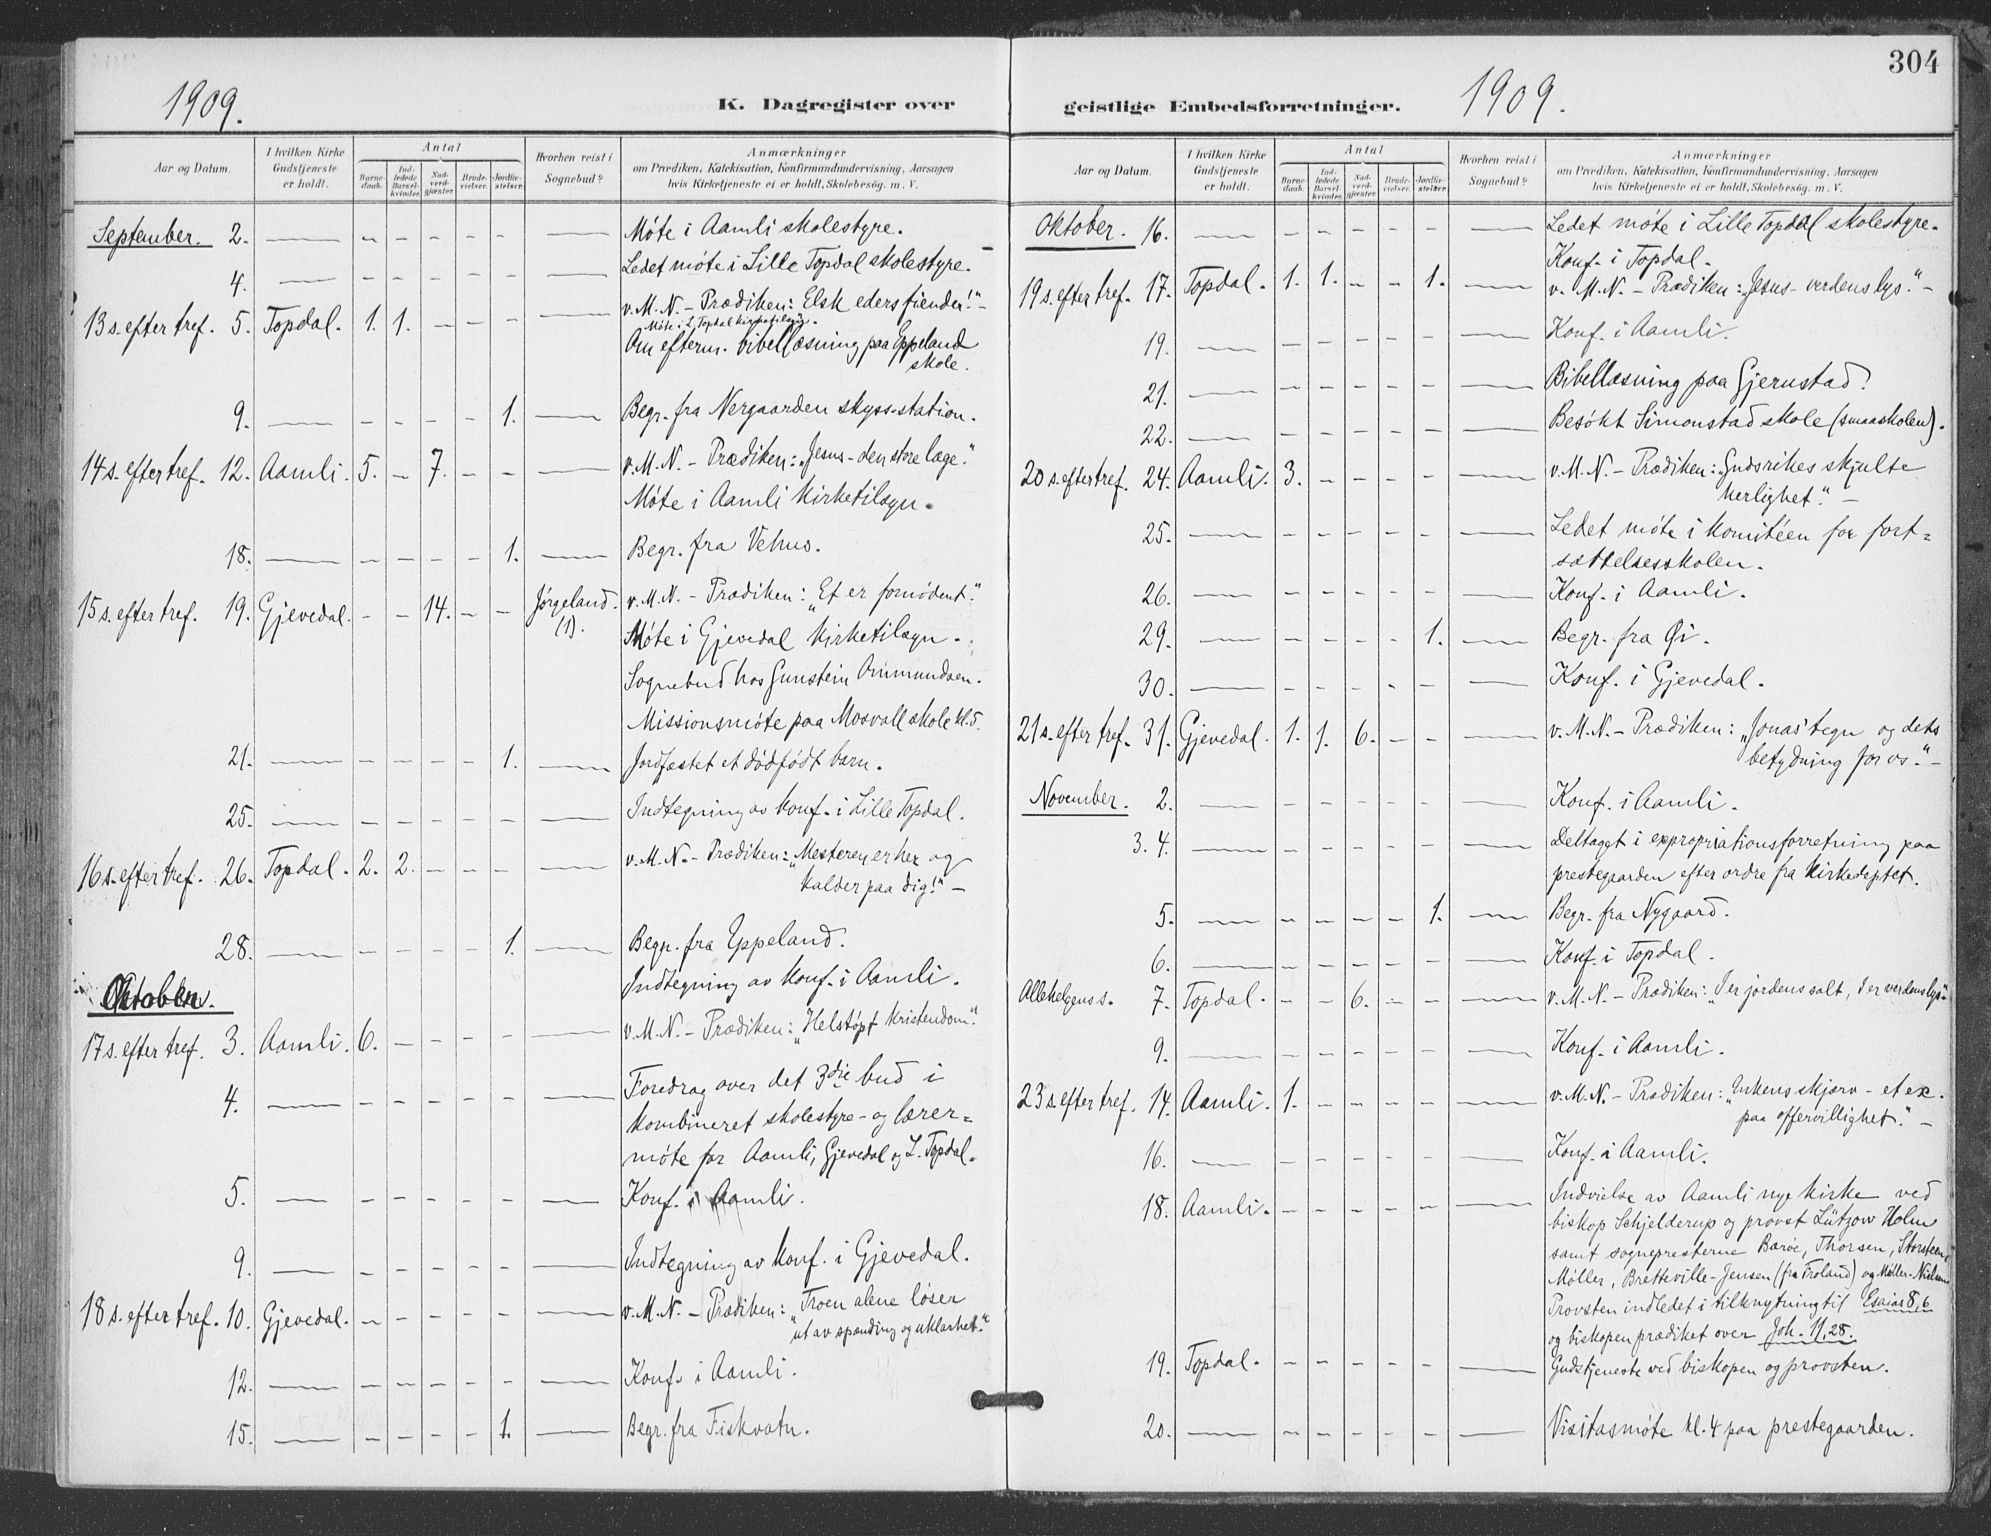 304
1909.
K. Dagregister over
Aar og Datum.
I hvilken Kirke Gudstjeneste er holdt.
Antal
Barnedaab.
Indledede Barselkvinder.
Nadverdgjester
Brudevielser.
Jordfæstelser.
Hvorhen reist i Sognebud?
Anmærkninger
om Prædiken, Katekisation, Konfirmandundervisning, Aarsagen
hvis Kirketjeneste ei er holdt, Skolebesøg. m. V.
September. 2. — – – – – – — Møte i Aamli skolestyre.
4. — – – – – – — Ledet møte i Lille Topdal skolestyre.
13 s. efter tref. 5. Topdal. 1. 1. – – – — v. M. N. – Prædiken: Elsk eders fiender!" –
Møte i L. Topdal kirketilsyn.
Om efterm. bibellæsning paa Eppeland
skole.
9. — – – – – 1. — Begr. fra Nergaarden skyss-station.
14 s. efter tref. 12. Aamli. 5. – 7. – – — v. M. N. – Prædiken: „Jesus – den store læge."
Møte i Aamli kirketilsyn.
18. — – – – – 1. — Begr. fra Vehus.
15 s. efter tref. 19. Gjevedal. – – 14. – – Jørgeland. (1). v. M. N. – Prædiken: „Et er fornødent."
Møte i Gjevedal kirketilsyn.
Sognebud hos Gunstein Ommundsen.
Missionsmøte paa Mosvall skole kl. 5.
21. — – – – – 1. — Jordfæstet et dødfødt barn.
25. — – – – – – — Indtegning av konf. i Lille Topdal.
16 s. efter tref. 26. Topdal. 2. 2. – – – — v. M. N. – Prædiken: „Mesteren er her og
kalder paa dig!" –
28. — – – – – 1. — Begr. fra Eppeland.
Indtegning av konf. i Aamli.
Oktober.
17 s. efter tref. 3. Aamli. 6. – – – – — v. M. N. – Prædiken: „Helstøpt kristendom."
4. — – – – – – — Foredrag over det 3die bud i
kombineret skolestyre- og lærer=
møte for Aamli, Gjevedal og L. Topdal.
5. — – – – – – — Konf. i Aamli.
9. — – – – – – — Indtegning av konf. i Gjevedal.
18 s. efter tref. 10. Gjevedal. – – – – – — v. M. N. – Prædiken: „Troen alene løser
ut av spænding og uklarhet."
12. — – – – – – — Konf. i Aamli.
15. — – – – – 1. — Begr. fra Fiskvatn.
geistlige Embedsforretninger.
1909.
Aar og Datum.
I hvilken Kirke Gudstjeneste er holdt.
Antal
Barnedaab.
Indledede Barselkvinder.
Nadverdgjester
Brudevielser.
Jordfæstelser
Hvorhen reist i Sognebud?
Anmærkninger
om Prædiken, Katekisation, Konfirmandundervisning, Aarsagen
hvis Kirketjeneste ei er holdt, Skolebesøg. m. V.
Oktober. 16. — – – – – – — Ledet møte i Lille Topdal skolestyre.
Konf. i Topdal.
19 s. efter tref. 17. Topdal. 1. 1. – – 1. — v. M. N. – Prædiken: „Jesus – verdens lys." –
19. — – – – – – — Konf. i Aamli.
21. — – – – – – — Bibellæsning paa Gjerustad.
22. — – – – – – — Besøkt Simonstad skole (smaaskolen).
20 s. efter tref. 24. Aamli. 3. – – – – — v. M. N. – Prædiken: „Gudsrikes skjulte
herlighet." –
25. — – – – – – — Ledet møte i komitéen for fort=
sættelsesskolen.
26. — – – – – – — Konf. i Aamli.
29. — – – – – 1. — Begr. fra Øi.
30. — – – – – – — Konf. i Gjevedal.
21 s. efter tref. 31. Gjevedal. 1. 1. 6. – – — v. M. N. – Prædiken: „Jonas' tegn og dets
betydning for os." –
November. 2. — – – – – – — Konf. i Aamli.
3. 4. — – – – – – — Deltaget i expropriationsforretning paa
prestegaarden efter ordre fra kirkedeptet.
5. — – – – – 1. — Begr. fra Nygaard.
6. — – – – – – — Konf. i Topdal.
Allehelgens s. 7. Topdal. – – 6. – – — v. M. N. – Prædiken: „I er jordens salt, I er verdens lys".
9. — – – – – – — Konf. i Aamli.
23 s. efter tref. 14. Aamli. 1. – – – – — v. M. N. – Prædiken: „Enkens skjærv – et ex.
paa offervillighet." –
16. — – – – – – — Konf. i Aamli.
18. Aamli. – – – – – — Indvielse av Aamli nye kirke ved
biskop Schjelderup og provst Lützow Holm
samt sognepresterne Barøe, Thorsen, Storsteen,
Møller, Bretteville-Jensen (fra Froland) og Møller-Nielsen
Provsten indledet i tilknytning til Esaias 8, 6
og biskopen prædiket over Joh. 11, 28.
19. Topdal. – – – – – — Gudstjeneste ved biskopen og provsten.
20. — – – – – – — Visitasmøte kl. 4 paa prestegaarden.